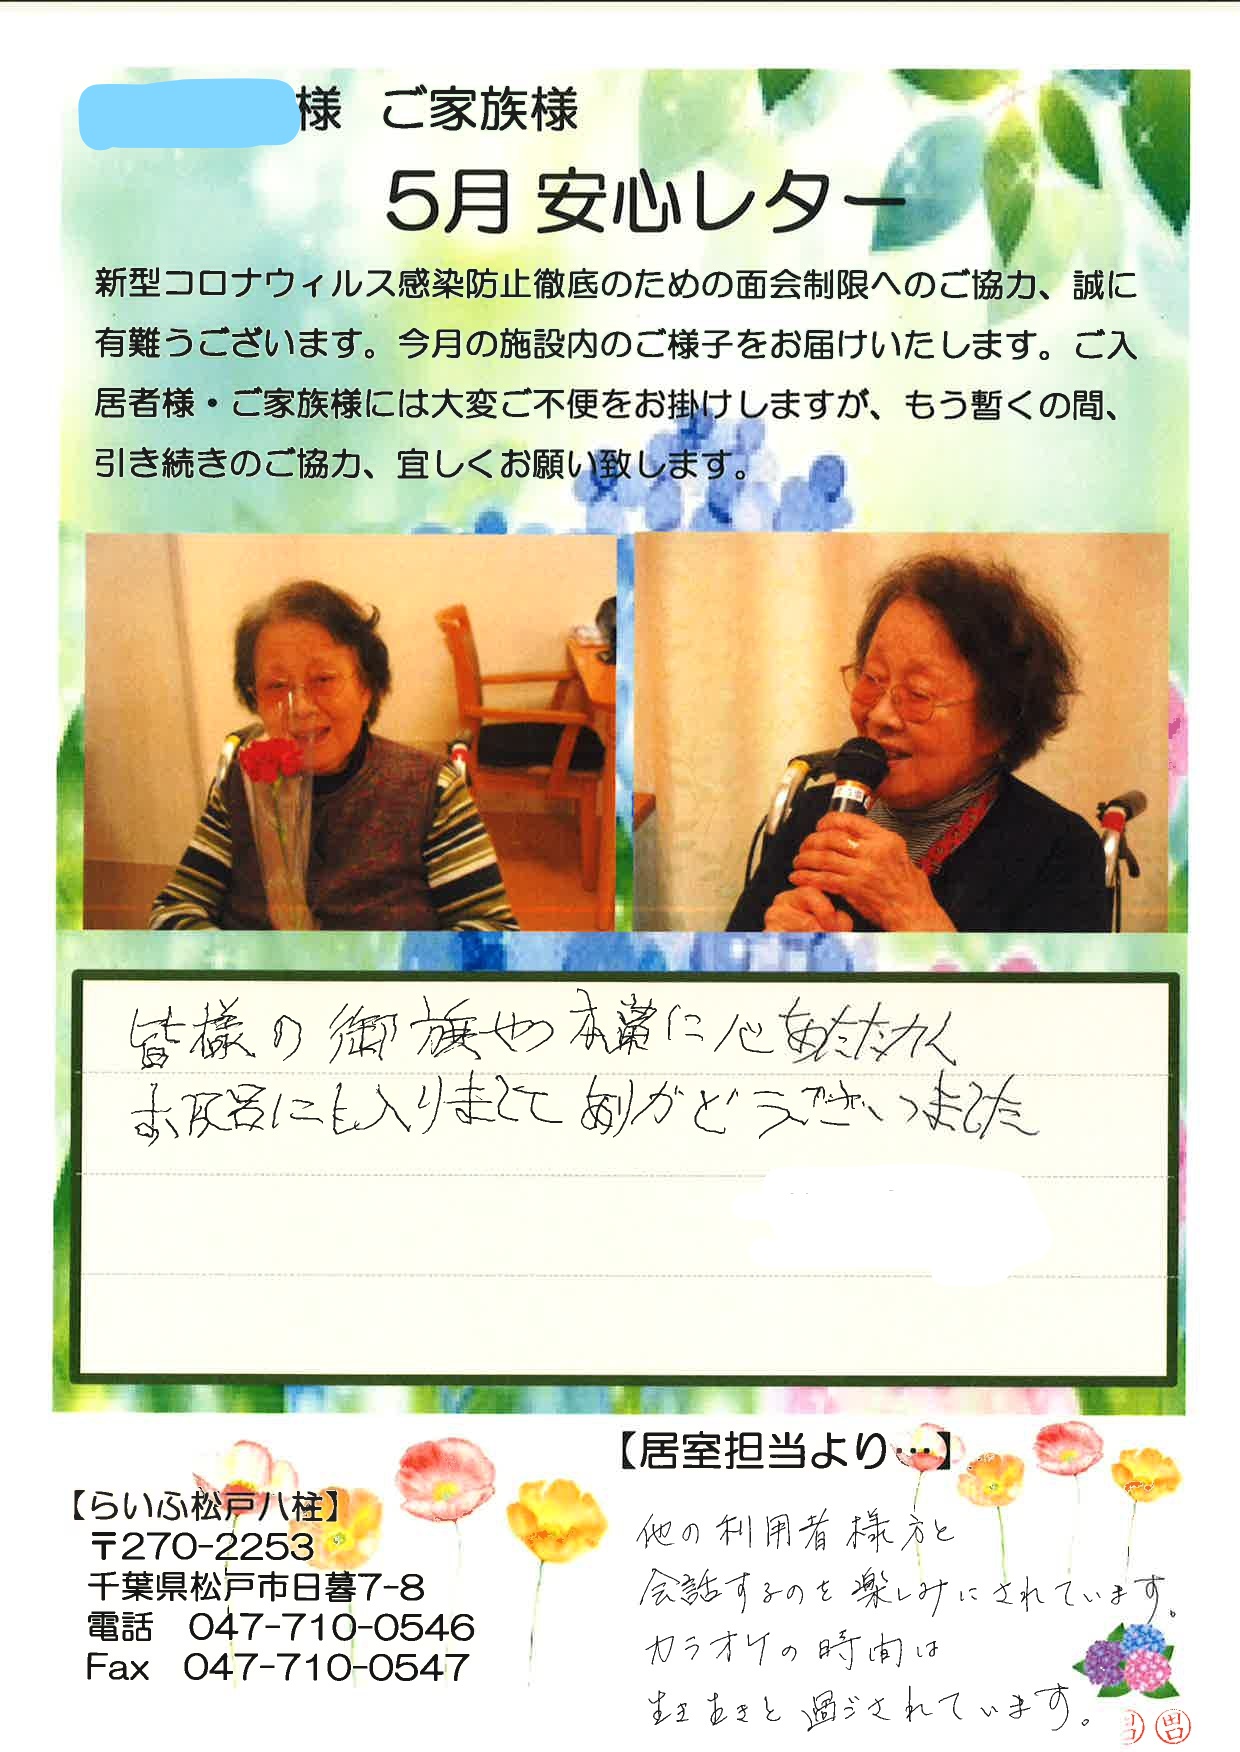 様 ご家族様
5月 安心レター
新型コロナウィルス感染防止徹底のための面会制限へのご協力、誠に
有難うございます。今月の施設内のご様子をお届けいたします。ご入
居者様・ご家族様には大変ご不便をお掛けしますが、もう暫くの間、
引き続きのご協力、宜しくお願い致します。
皆様の御 本当に心あたたかく
お風呂にも入りまして ありがどうございつました
【居室担当より…】
他の利用者様方と
会話するのを楽しみにされています。
カラオケの時間は
生き生きと過ごされています。
【らいふ松戸八柱】
〒270-2253
千葉県松戸市日暮7-8
電話 047-710-0546
Fax 047-710-0547